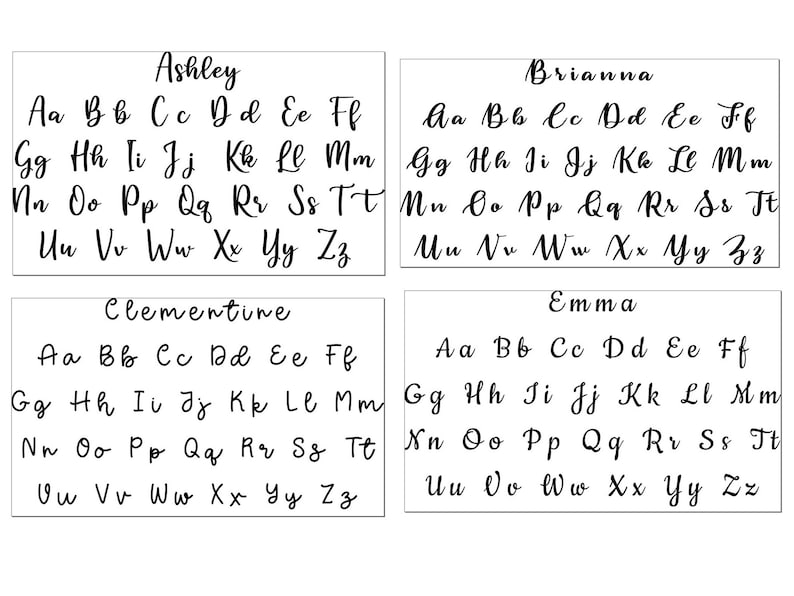 Ashley
Aa Bb Cc Dd Ee Ff
Gg Hh Ii Jj Kk Ll Mm
Nn Oo Pp Qq Rr Ss Tt
Uu Vv Ww Xx Yy Zz
Brianna
Aa Bb Cc Dd Ee Ff
Gg Hh Ii Jj Kk Ll Mm
Nn Oo Pp Qq Rr Ss Tt
Uu Vv Ww Xx Yy Zz
Clementine
Aa Bb Cc Dd Ee Ff
Gg Hh Ii Jj Kk Ll Mm
Nn Oo Pp Qq Rr Ss Tt
Uu Vv Ww Xx Yy Zz
Emma
Aa Bb Cc Dd Ee Ff
Gg Hh Ii Jj Kk Ll Mm
Nn Oo Pp Qq Rr Ss Tt
Uu Vv Ww Xx Yy Zz